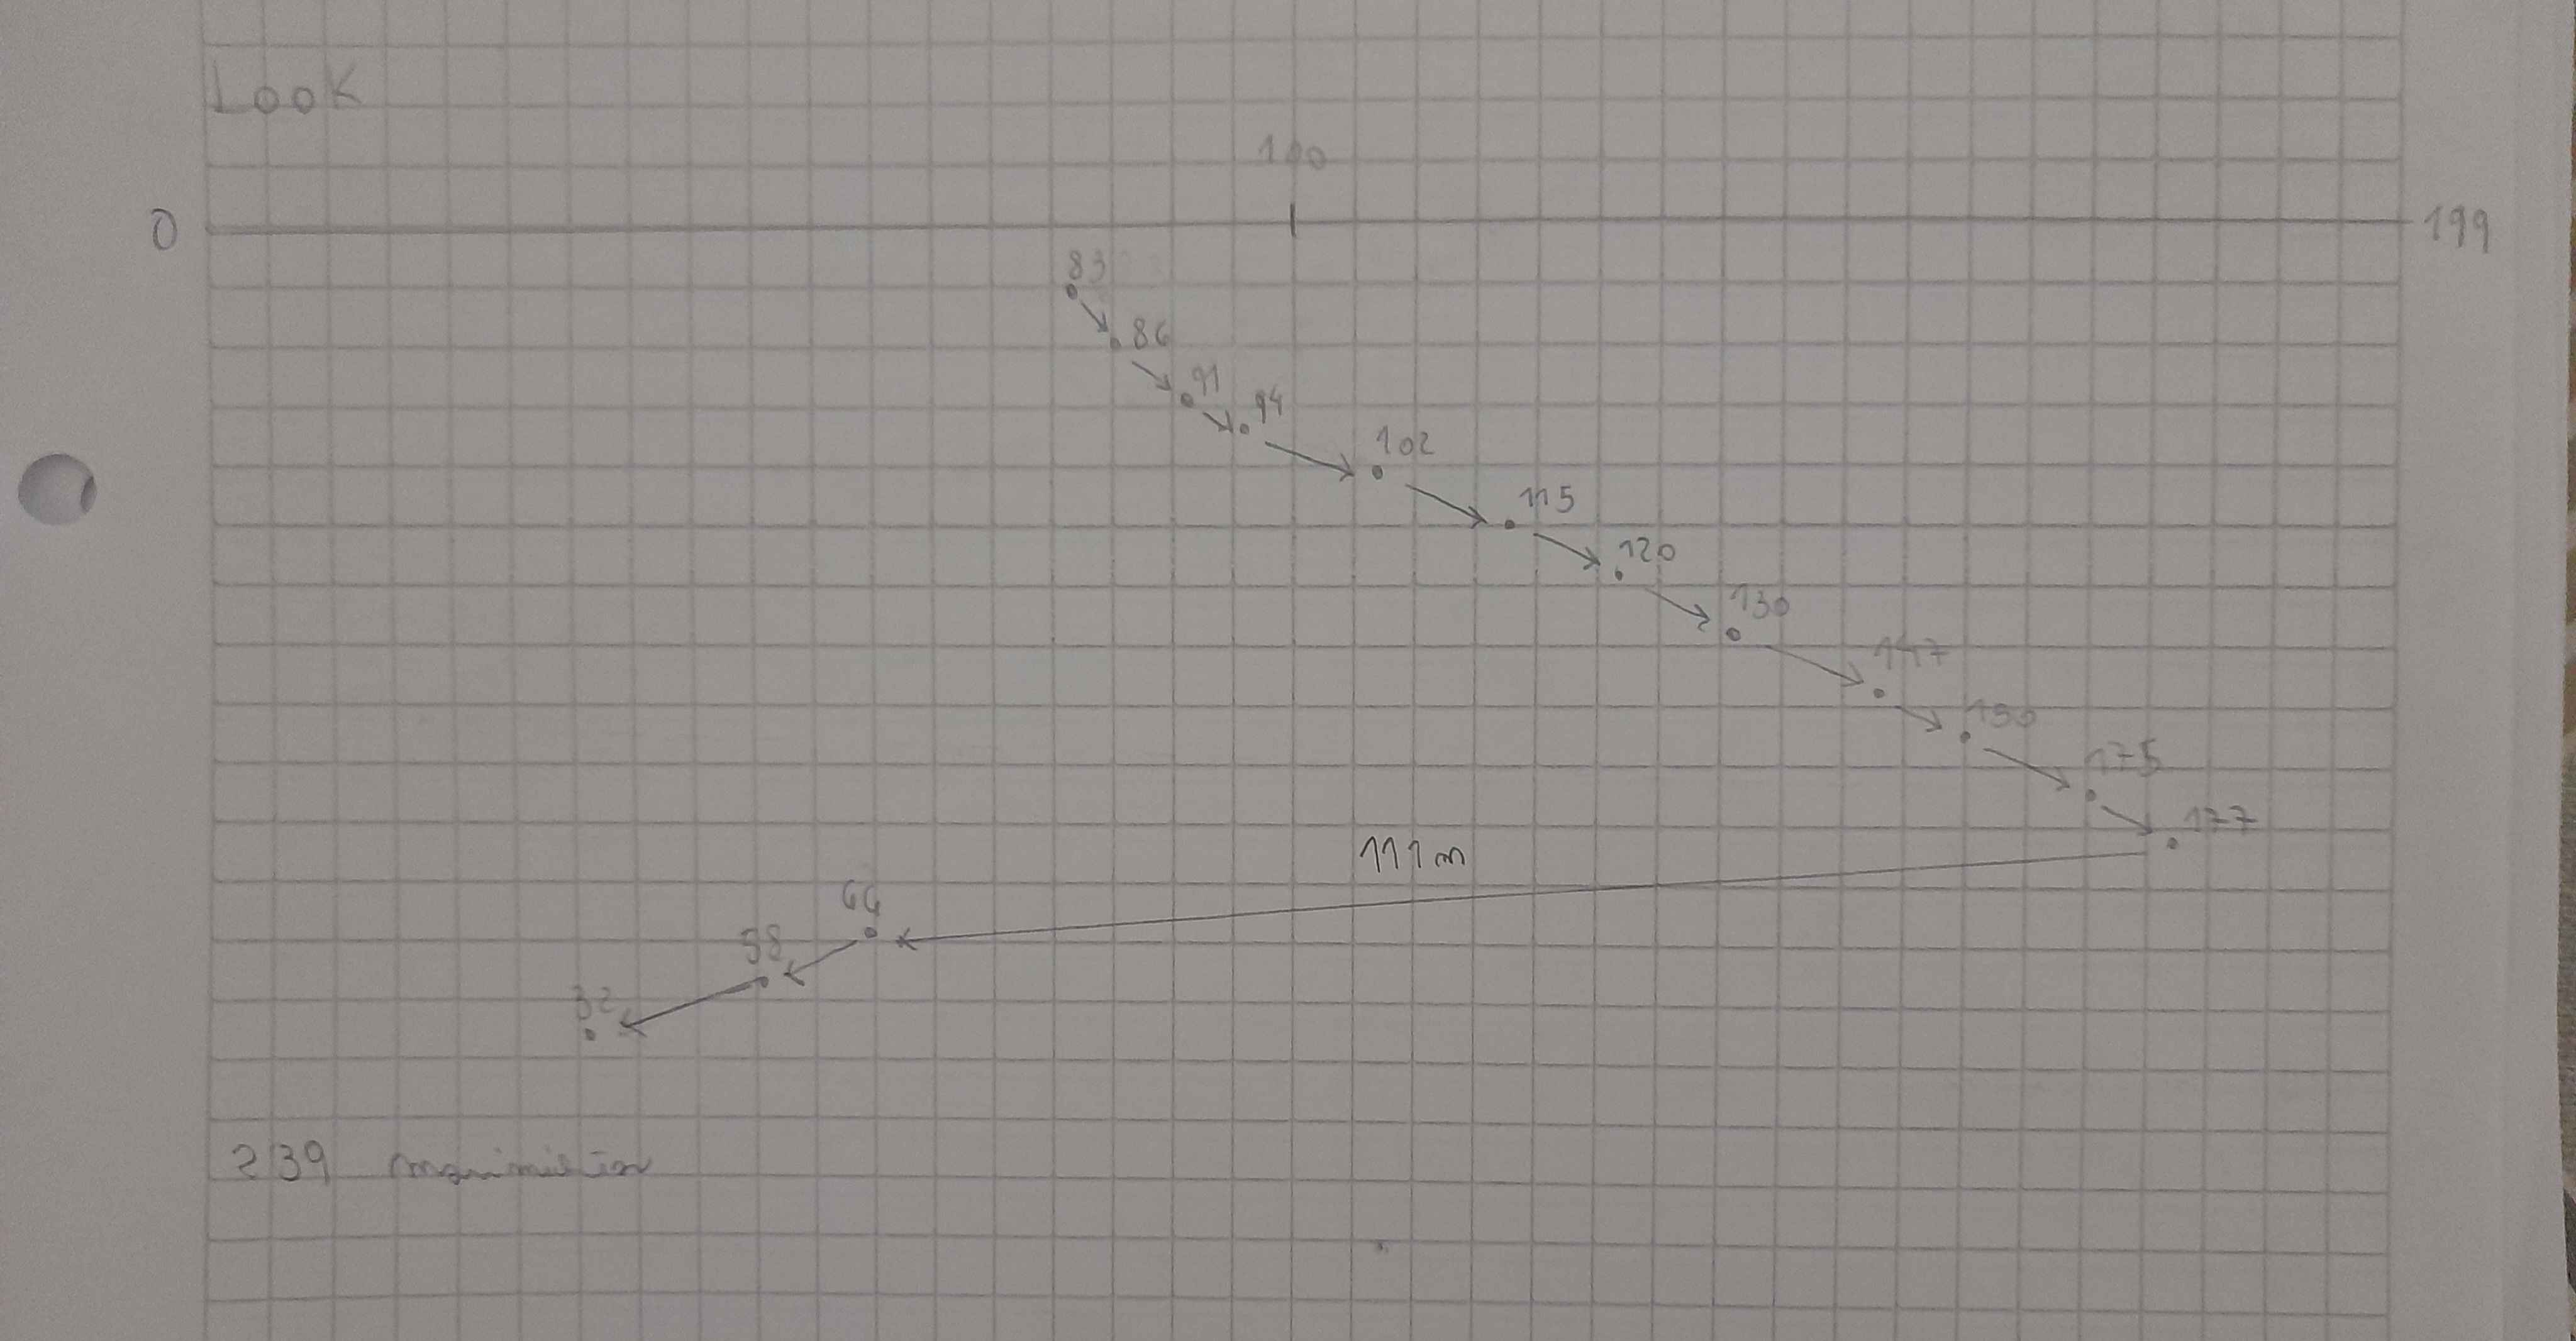 Look
100
0 199
83
86
91
94
102
115
120
130
147
150
175
177
111m
66
58
32
239